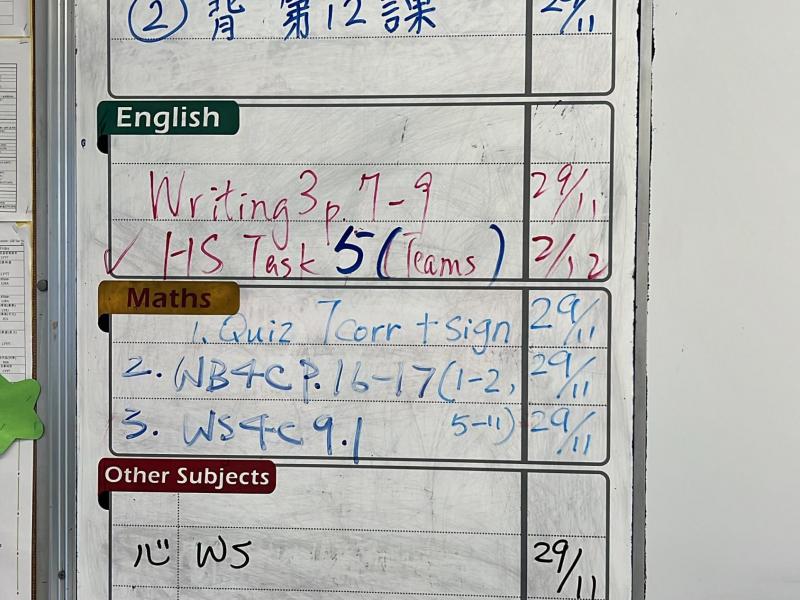 ② 背 第12課 29/11
English
Writing 3 p. 7-9 29/11
✓ HS Task 5 (Teams) 2/12
Maths
1. Quiz 7 corr + sign 29/11
2. WB4C P. 16-17 (1-2, 29/11
3. WS 4C 9.1 5-11) 29/11
Other Subjects
心 WS 29/11